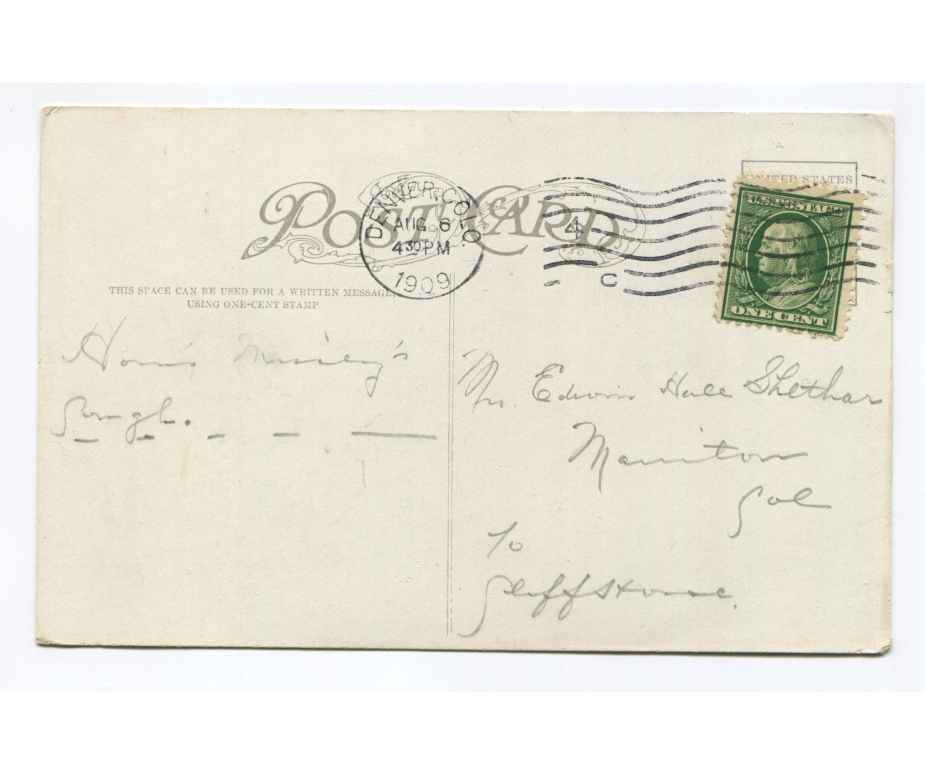 POST CARD
DENVER, COLO.
AUG 6
4 30 PM
1909
4
C
UNITED STATES
U.S. POSTAGE
ONE CENT
THIS SPACE CAN BE USED FOR A WRITTEN MESSAGE,
USING ONE-CENT STAMP
How's
Cough.
Mr. Edwin Hall Shethar
Manitou
Col
To
Cliff House.